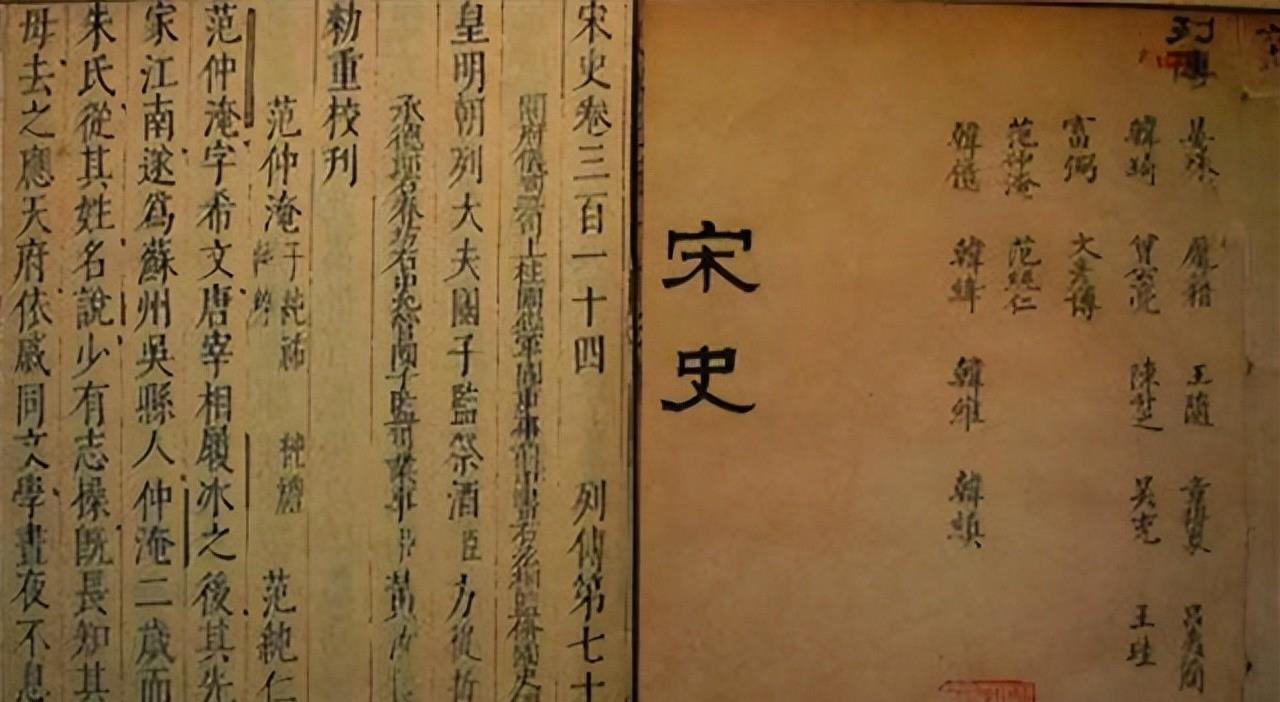 列傳
晏殊 龐籍 王隨 章得象 呂夷簡
韓琦 曾公亮 陳升之 吳充 王珪
富弼 文彥博
范仲淹 范純仁
韓億 韓絳 韓維 韓縝
宋史
宋史卷三百一十四 列傳第七十
開府儀同三司上柱國
皇明朝列大夫國子監祭酒臣方從哲
承德郎右春坊右 管國子監司業事臣黃汝
勑重校刊
范仲淹 子純祐 純禮 純粹 范純仁
范仲淹字希文唐宰相履冰之後其先
家江南遂爲蘇州吳縣人仲淹二歲而
朱氏從其姓名說少有志操既長知其
母去之應天府依戚同文學晝夜不息